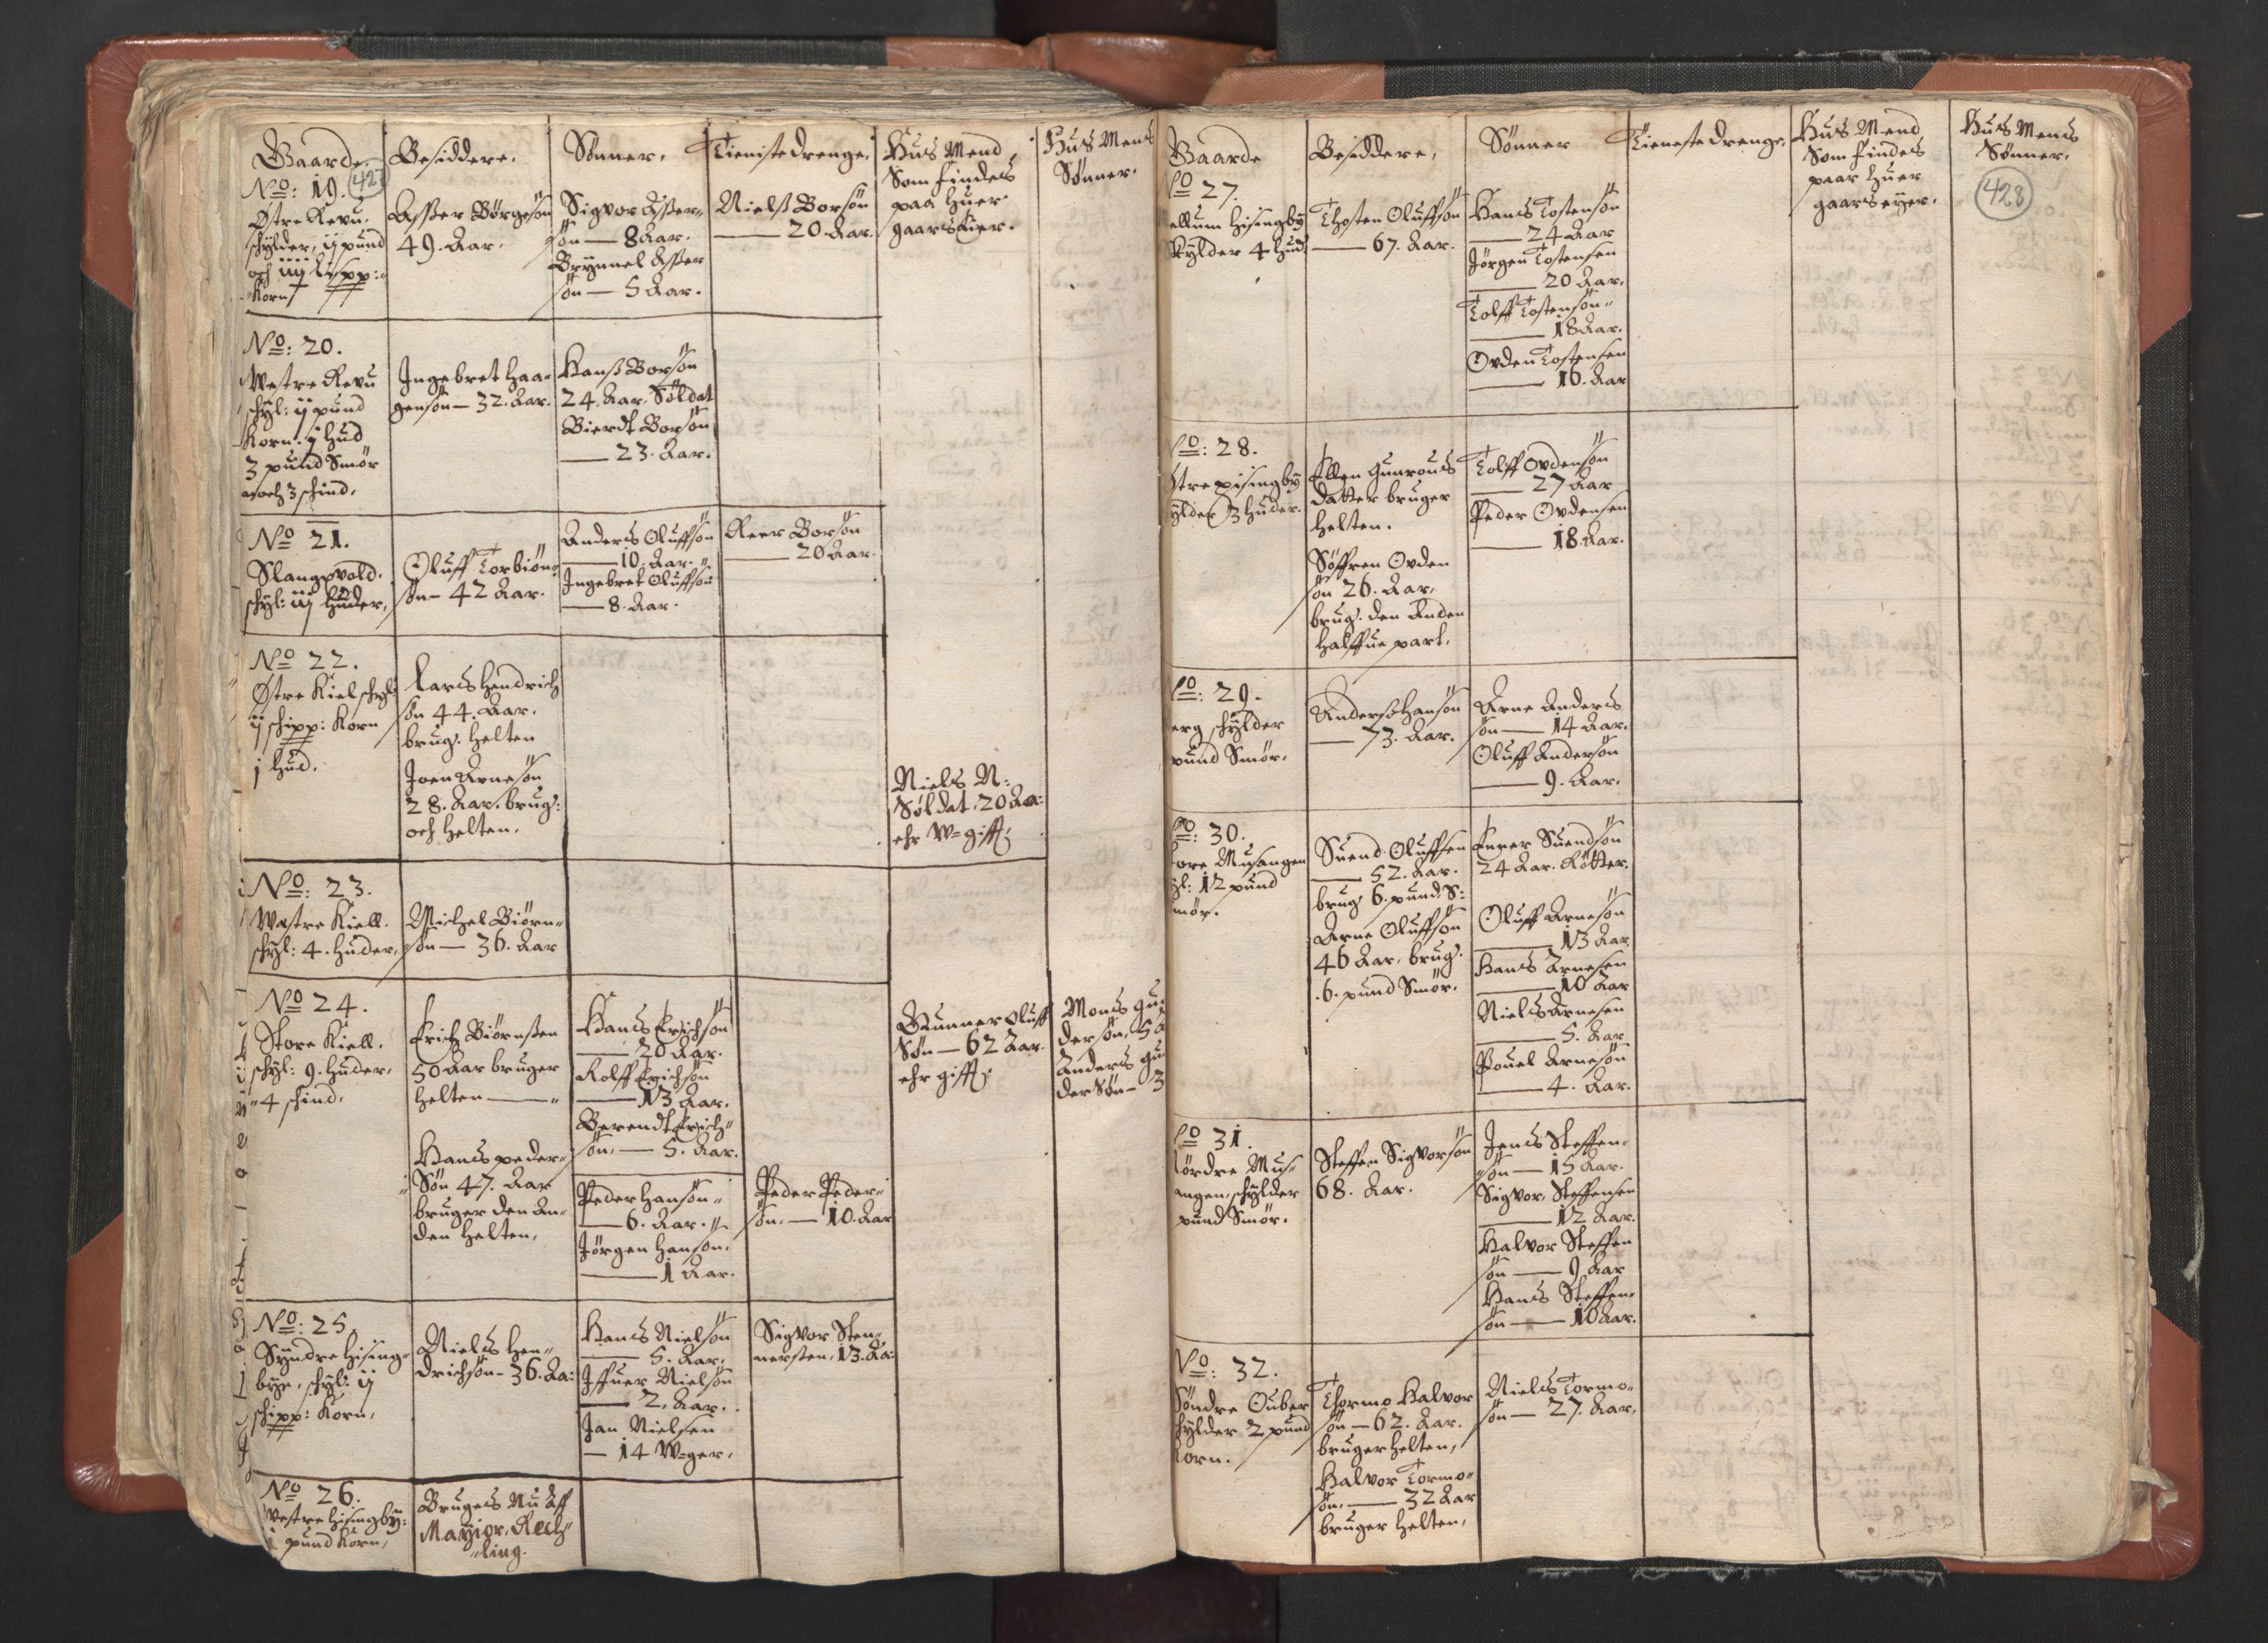 Gaarde.
Besiddere.
Sønner.
Tienistedrenge.
Huus Mend
Som findes
paa huer
gaards Eier.
Huus Mends
Sønner.
No: 19.
427
Østre Revu.
schylder, ij pund
och iiij lispp:
Korn
Asser Børgesøn
49. Aar.
Sigvor Asser-
søn — 8 Aar.
Brynnel Asser
søn — 5 Aar.
Nielß Borsøn
— 20 Aar.
No: 20.
Westre Revu
schyl: ij pund
Korn. j hud
3 pund Smør
och 3 schind.
Ingebret Haa-
gensøn — 32. Aar.
Hanß Borsøn
24. Aar. Soldat
Bierdt Borsøn
— 23. Aar.
No 21.
Slangsvold.
schyl: iiij Huder.
Oluff Torbiøn-
søn — 42 Aar.
Anders Oluffsøn
— 10. Aar.
Ingebret Oluffsøn
— 8. Aar.
Reer Borsøn
— 20 Aar.
No 22.
Østre Kiel schyl:
ij schipp: Korn
j hud.
Lars Hendrich
søn 44. Aar.
brug: helten
Joen Arnesøn
28. Aar. brug:
och helten.
Niels N:
Soldat, 20 Aa:
ehr W=gift;
No: 23.
Westre Kiell.
schyl: 4. huder.
Michel Biørn-
søn — 36. Aar
No 24.
Store Kiell.
schyl: 9. huder.
4 schind.
Erich Biørnsen
50 Aar bruger
helten —
Hans peder-
Søn 47. Aar
bruger den An-
den helten.
Hans Erichsøn
— 20 Aar.
Rolff Erichsøn
— 13 Aar.
Berendt Erich-
søn. — 5. Aar.
Peder Hansøn
— 6. Aar.
Jørgen Hansøn.
— 1 Aar.
Peder Peder-
søn. — 10. Aar
Gunner Oluff
Søn — 62 Aar.
ehr gift;
Mons Gu
der søn, 5 A
Anders Gu
der Søn — 3
No: 25.
Syndre Hising-
bye, schyl: ij
schipp: Korn,
Niels Hen-
drichsøn — 36. Aa:
Hans Nielsøn
— 5. Aar.
Iffuer Nielsøn
— 2. Aar.
Jan Nielsen
— 14 W=ger.
Sigvor Sten-
nersen, 13. Aa:
No 26.
Westre Hisingby:
pund Korn,
Bruges Nu aff
Mayior, Rech-
ling.
Gaarde
Besiddere,
Sønner
Tienestedrenge.
Huus Mend
Som findes
paar huer
gaards eyer.
Huus Mends
Sønner.
428
No 27.
ellum Hisingby
skylder 4 hud:
Thosten Oluffsøn
— 67. Aar.
Hans Tostensøn
— 24 Aar
Jørgen Tostensen
— 20 Aar.
Tolff Tostensøn
— 18 Aar.
Ovden Tostensen
— 16. Aar
No: 28.
stre pisingby
ylder 3 huder.
Ellen Gunrouds
datter bruger
helten.
Søffren Ovden
søn 26. Aar,
brug: den Anden
halffue part.
Tolff Ovdensøn
— 27 Aar
Peder Ovdensen
— 18. Aar.
No: 29.
erg schylder
pund Smør.
Anders Hansøn
— 73. Aar.
Arne Anders
søn — 14 Aar.
Oluff Andersøn
— 9. Aar.
No: 30.
tore Musangen
yl: 12 pund
mør.
Suend Oluffsen
— 52. Aar.
brug 6. pund S:
Arne Oluffsøn
46 Aar, brug:
.6. pund Smør.
Enner Suendsøn
24 Aar. Røtter.
Oluff Arnesøn
— 13 Aar
Hans Arnesen
— 10 Aar
Niels Arnesen
— 5. Aar
Pouel Arnesøn
— 4. Aar.
No 31.
ørdre Mus-
angen, schylder
pund Smør.
Steffen Sigvorsøn
68. Aar.
Jens Steffen-
søn — 15 Aar.
Sigvor Steffensen
— 12 Aar.
Halvor Steffen
søn — 9 Aar
Hans Steffen-
søn — 10 Aar.
No: 32.
Søndre Ouber
schylder 2 pund
Korn.
Thormo Halvor
søn — 62. Aar.
bruger helten,
Halvor Tormo-
søn. — 32 Aar
bruger helten,
Niels Tormo-
søn — 27. Aar.